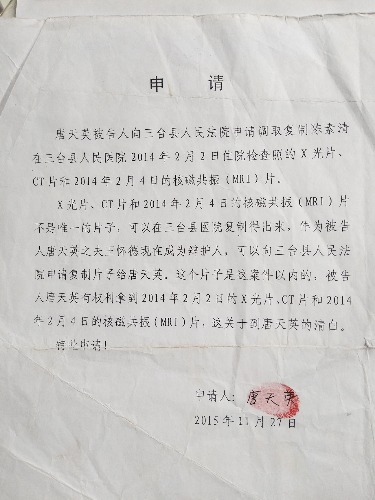 申 请
唐天英被告人向三台县人民法院申请调取复制陈素清
在三台县人民医院2014年2月2日住院检查照的X光片、
CT片和2014年2月4日的核磁共振(MRI)片。
X光片、CT片和2014年2月4日的核磁共振(MRI)片
不是唯一的片子，可以在三台县医院复制得出来，作为被告
人唐天英之夫王怀德现在成为辩护人，可以向三台县人民法
院申请复制片子给唐天英。这个片子是这案件以内的，被告
人唐天英有权利拿到2014年2月2日的X光片、CT片和2014
年2月4日的核磁共振(MRI)片，这关于到唐天英的清白。
特此申请！
申请人：唐天英
2015年11月27日